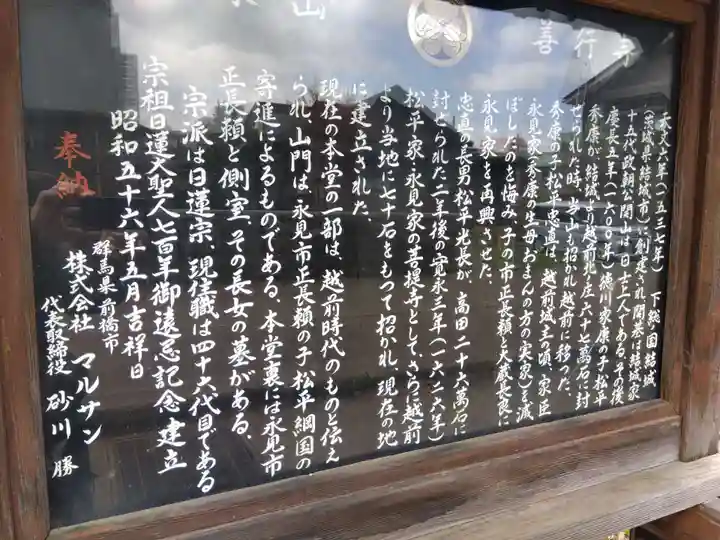 善行寺
山
天文六年(一五三七年) 下総の国結城
(茨城県結城市)に創建され開基は結城家
十五代政朝公開山は日七上人である。その後
慶長五年(一六〇〇年)徳川家康の子松平
秀康が結城より越前北ノ庄六十七萬石に封
せられた時、当山も招かれ越前に移った。
秀康の子松平忠直は、越前城主の頃、家臣
永見家(秀康の生母おまんの方の実家)を滅
ぼしたのを悔み、子の市正長頼と大蔵長良に
永見家を再興させた。
忠直の長男松平光長が、高田二十六萬石に
封せられた二年後の寛永三年(一六二六年)
松平家・永見家の菩提寺として、さらに越前
より当地に七十石をもって招かれ、現在の地
に建立された。
現在の本堂の一部は、越前時代のものと伝え
られ、山門は、永見市正長頼の子松平綱国の、
寄進によるものである。本堂裏には永見市
正長頼と側室、その長女の墓がある。
宗派は日蓮宗、現住職は四十六代目である
宗祖日蓮大聖人七百年御遠忌記念建立
昭和五十六年五月吉祥日
奉納
群馬県前橋市
株式会社 マルサン
代表取締役 砂川 勝